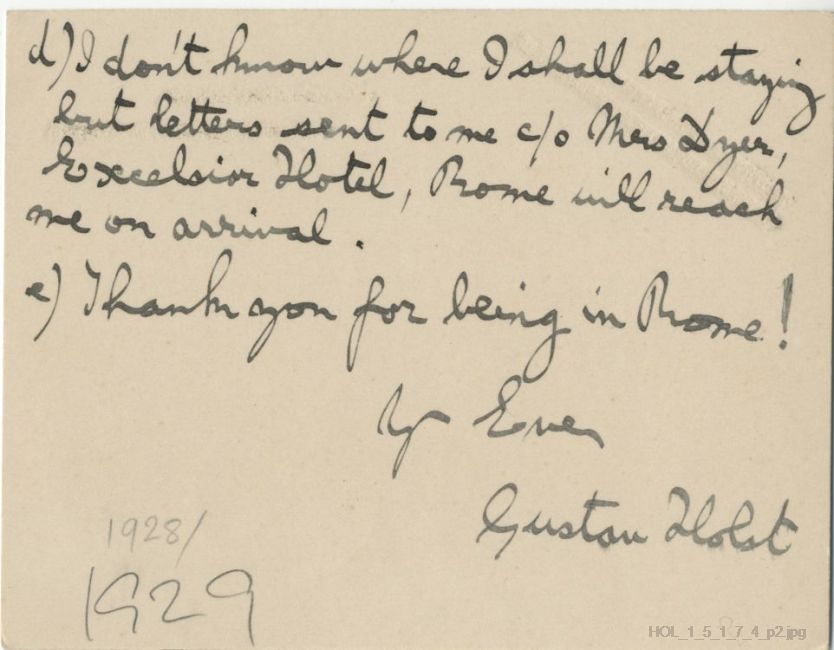 d) I don't know where I shall be staying
but letters sent to me c/o Mrs Dyer,
Excelsior Hotel, Rome will reach
me on arrival.
e) Thank you for being in Rome!
Yr Ever
Gustav Holst
1928/
1929
HOL_1_5_1_7_4_p2.jpg